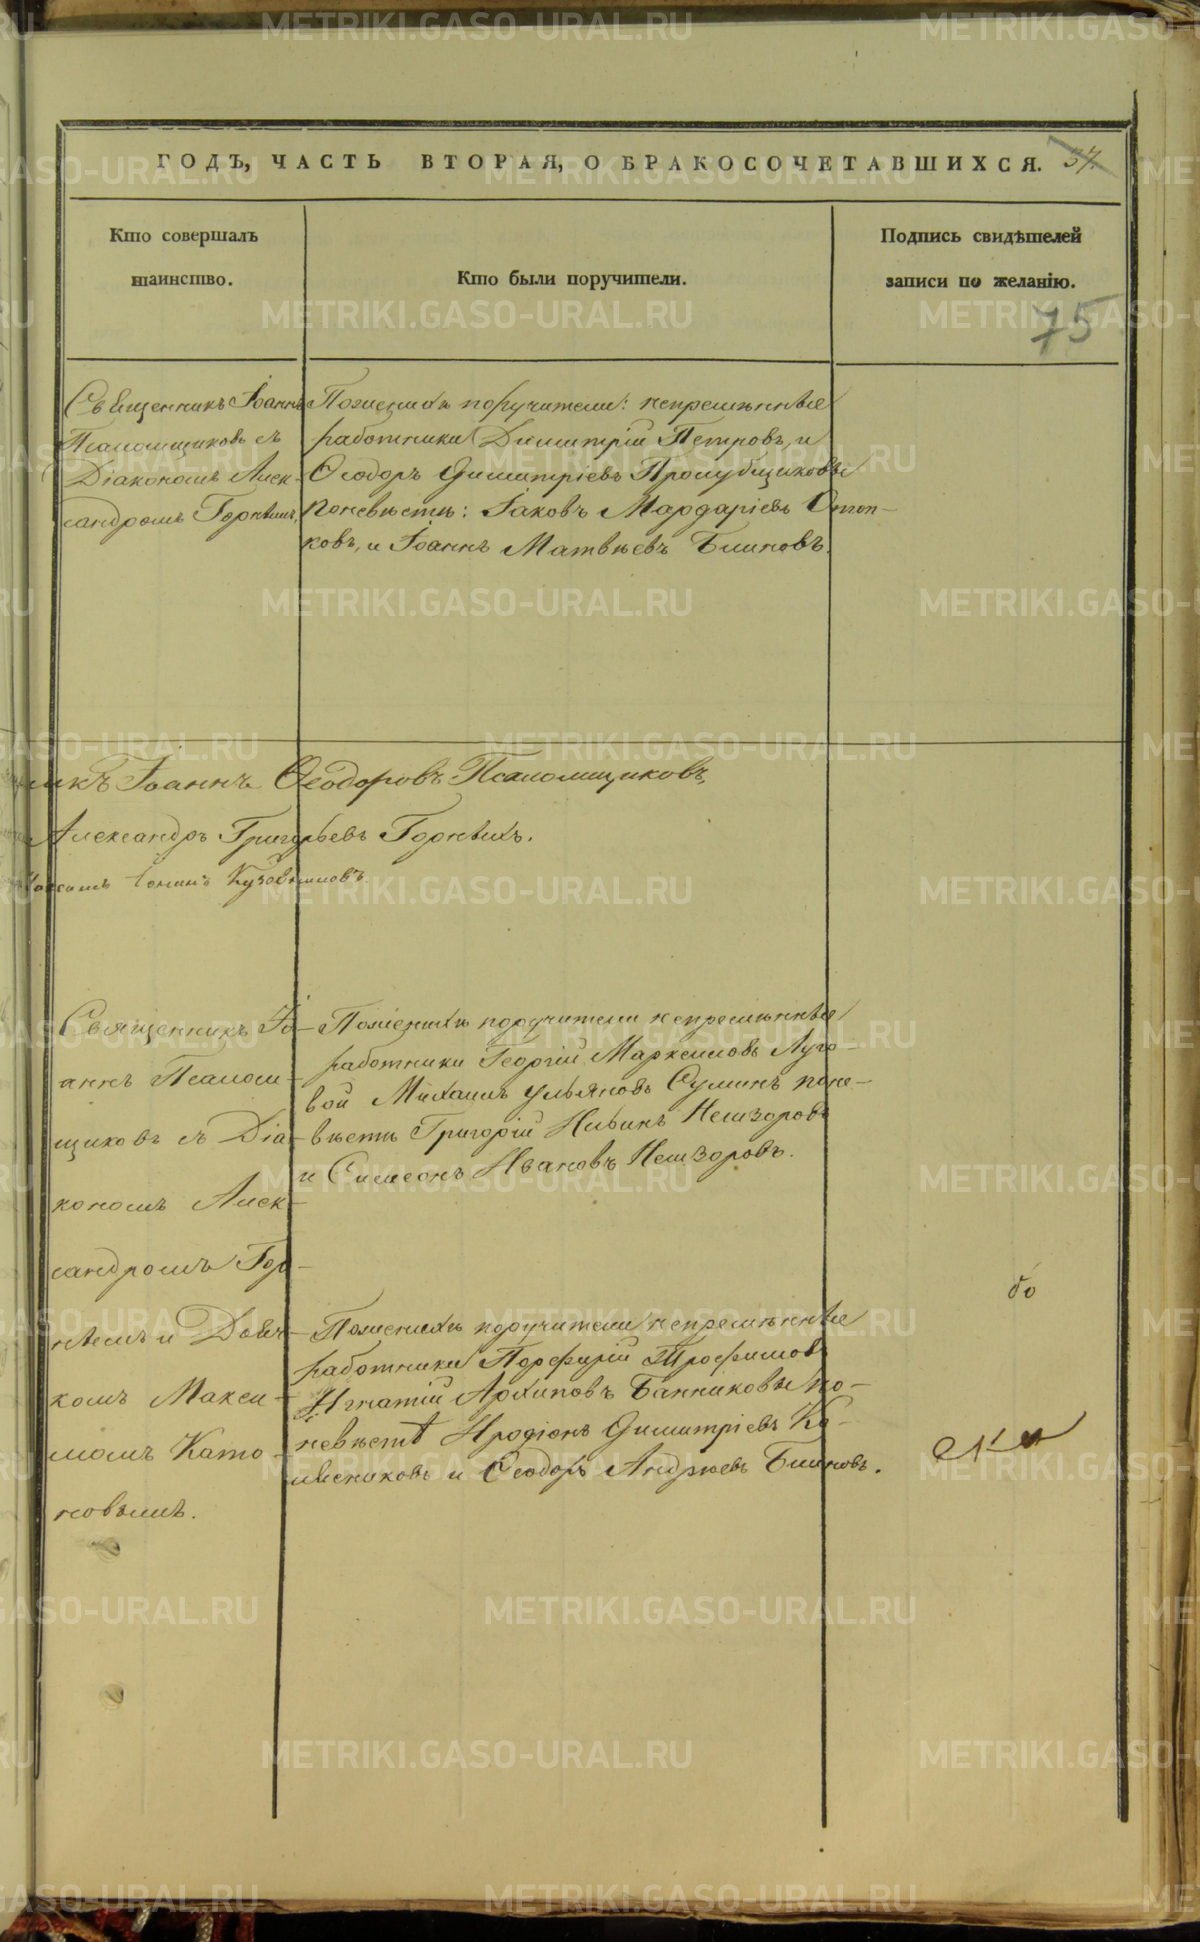 ГОДЪ, ЧАСТЬ ВТОРАЯ, О БРАКОСОЧЕТАВШИХСЯ. 37.
Кто совершалъ
таинство.
Кто были поручители.
Подпись свидѣтелей
записи по желанію.
75
Священникъ Іоаннъ
Псаломщиковъ съ
Діакономъ Алек-
сандромъ Горныхъ.
По женихѣ поручители: непремѣнные
работники Димитрій Петровъ, и
Ѳеодоръ Димитріевъ Пролубщиковы
по невѣстѣ: Іаковъ Мардаріевъ
ковъ, и Іоаннъ Матвѣевъ Блиновъ.
икъ Іоаннъ Ѳеодоровъ Псаломщиковъ,
Александръ Григорьевъ Горныхъ.
Священникъ Іо-
аннъ Псалом-
щиковъ съ Діа-
кономъ Алек-
сандромъ Гор-
нымъ и Дьяч-
комъ Макси-
момъ
новымъ.
По женихѣ поручители непремѣнные
работники Георгій Маркеловъ Луго-
вой Михаилъ Ульяновъ Суминъ по не-
вѣстѣ Григорій Ильинъ Немзоровъ
и Симеонъ Ивановъ Немзоровъ.
По женихѣ поручители непремѣнные
работники Порфирій Трофимовъ
Игнатій Архиповъ Банниковы по
невѣстѣ Иродіонъ Димитріевъ Ко-
и Ѳеодоръ Андреевъ Блиновъ.
METRIKI.GASO-URAL.RU